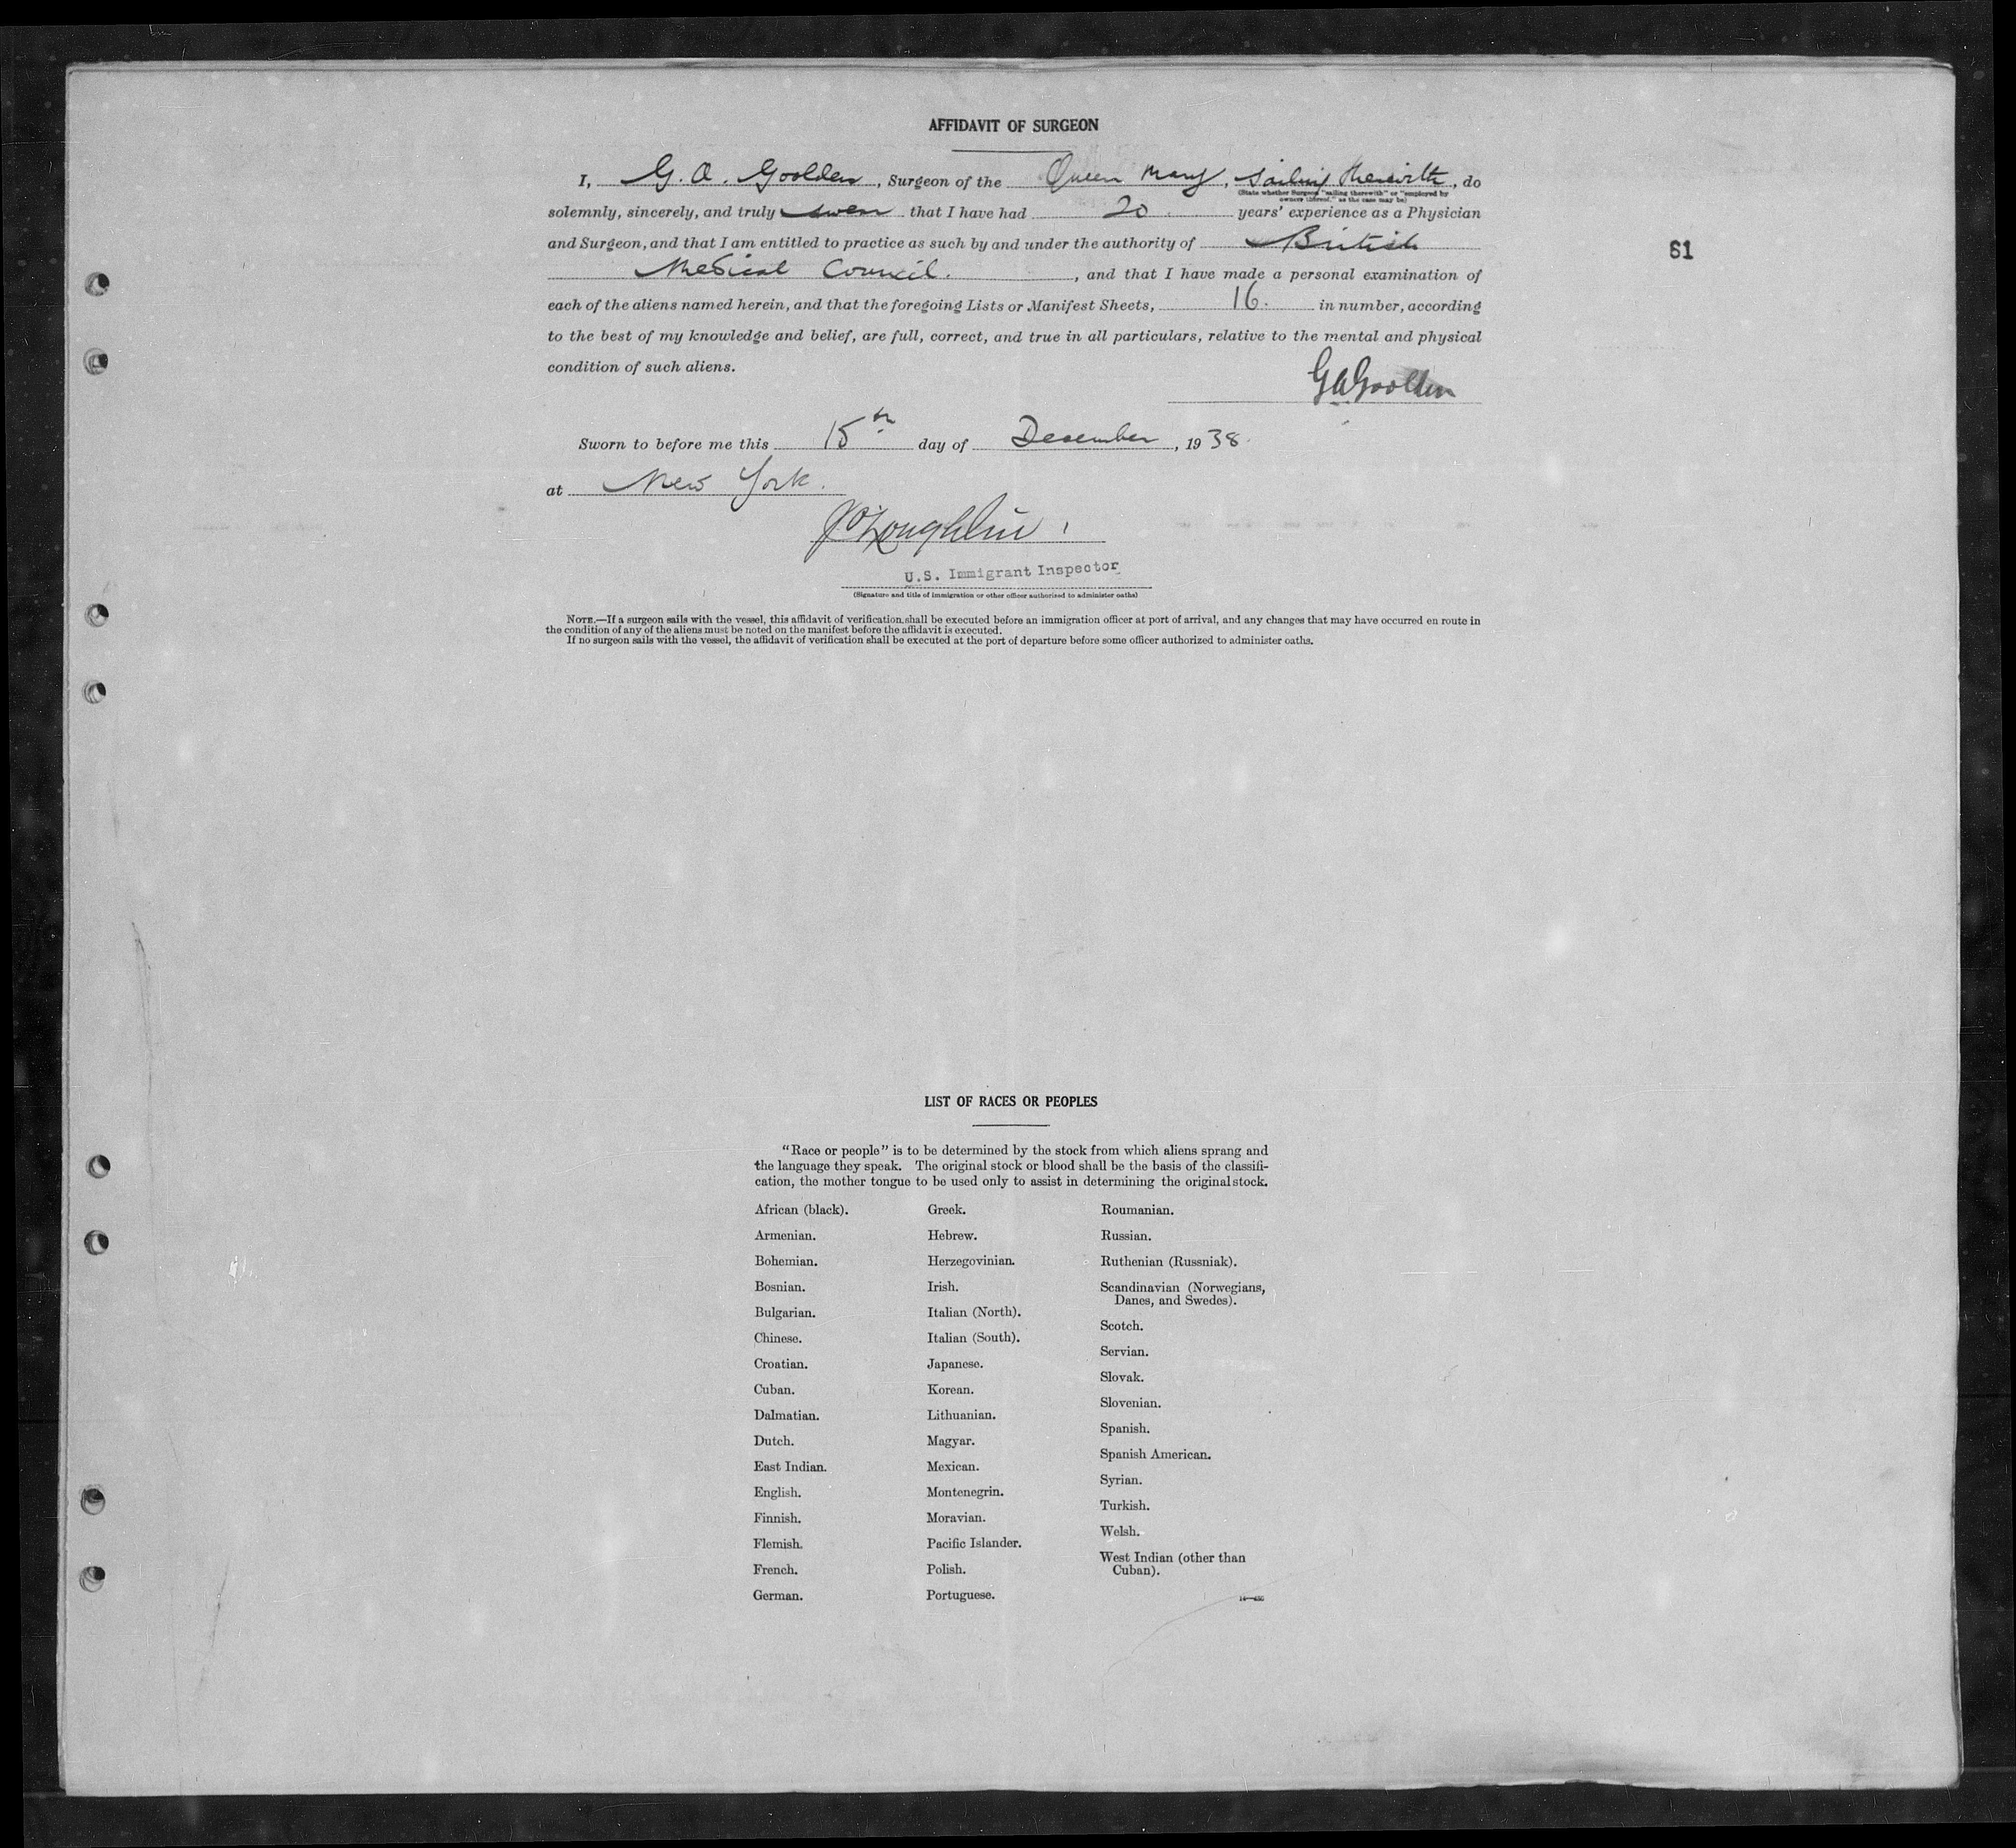 AFFIDAVIT OF SURGEON
I, G. A. Goolden, Surgeon of the Queen Mary, Sailing therewith, do
(State whether Surgeon "sailing therewith" or "employed by
owners thereof," as the case may be)
solemnly, sincerely, and truly swear that I have had 20 years' experience as a Physician
and Surgeon, and that I am entitled to practice as such by and under the authority of British
S1
Medical Council., and that I have made a personal examination of
each of the aliens named herein, and that the foregoing Lists or Manifest Sheets, 16. in number, according
to the best of my knowledge and belief, are full, correct, and true in all particulars, relative to the mental and physical
condition of such aliens.
GAGoolden
Sworn to before me this 15th day of December, 1938.
at New York.
J O'Loughlin
U.S. Immigrant Inspector
(Signature and title of immigration or other officer authorized to administer oaths)
NOTE.—If a surgeon sails with the vessel, this affidavit of verification shall be executed before an immigration officer at port of arrival, and any changes that may have occurred en route in
the condition of any of the aliens must be noted on the manifest before the affidavit is executed.
If no surgeon sails with the vessel, the affidavit of verification shall be executed at the port of departure before some officer authorized to administer oaths.
LIST OF RACES OR PEOPLES
"Race or people" is to be determined by the stock from which aliens sprang and
the language they speak. The original stock or blood shall be the basis of the classifi-
cation, the mother tongue to be used only to assist in determining the original stock.
African (black).
Armenian.
Bohemian.
Bosnian.
Bulgarian.
Chinese.
Croatian.
Cuban.
Dalmatian.
Dutch.
East Indian.
English.
Finnish.
Flemish.
French.
German.
Greek.
Hebrew.
Herzegovinian.
Irish.
Italian (North).
Italian (South).
Japanese.
Korean.
Lithuanian.
Magyar.
Mexican.
Montenegrin.
Moravian.
Pacific Islander.
Polish.
Portuguese.
Roumanian.
Russian.
Ruthenian (Russniak).
Scandinavian (Norwegians,
Danes, and Swedes).
Scotch.
Servian.
Slovak.
Slovenian.
Spanish.
Spanish American.
Syrian.
Turkish.
Welsh.
West Indian (other than
Cuban).